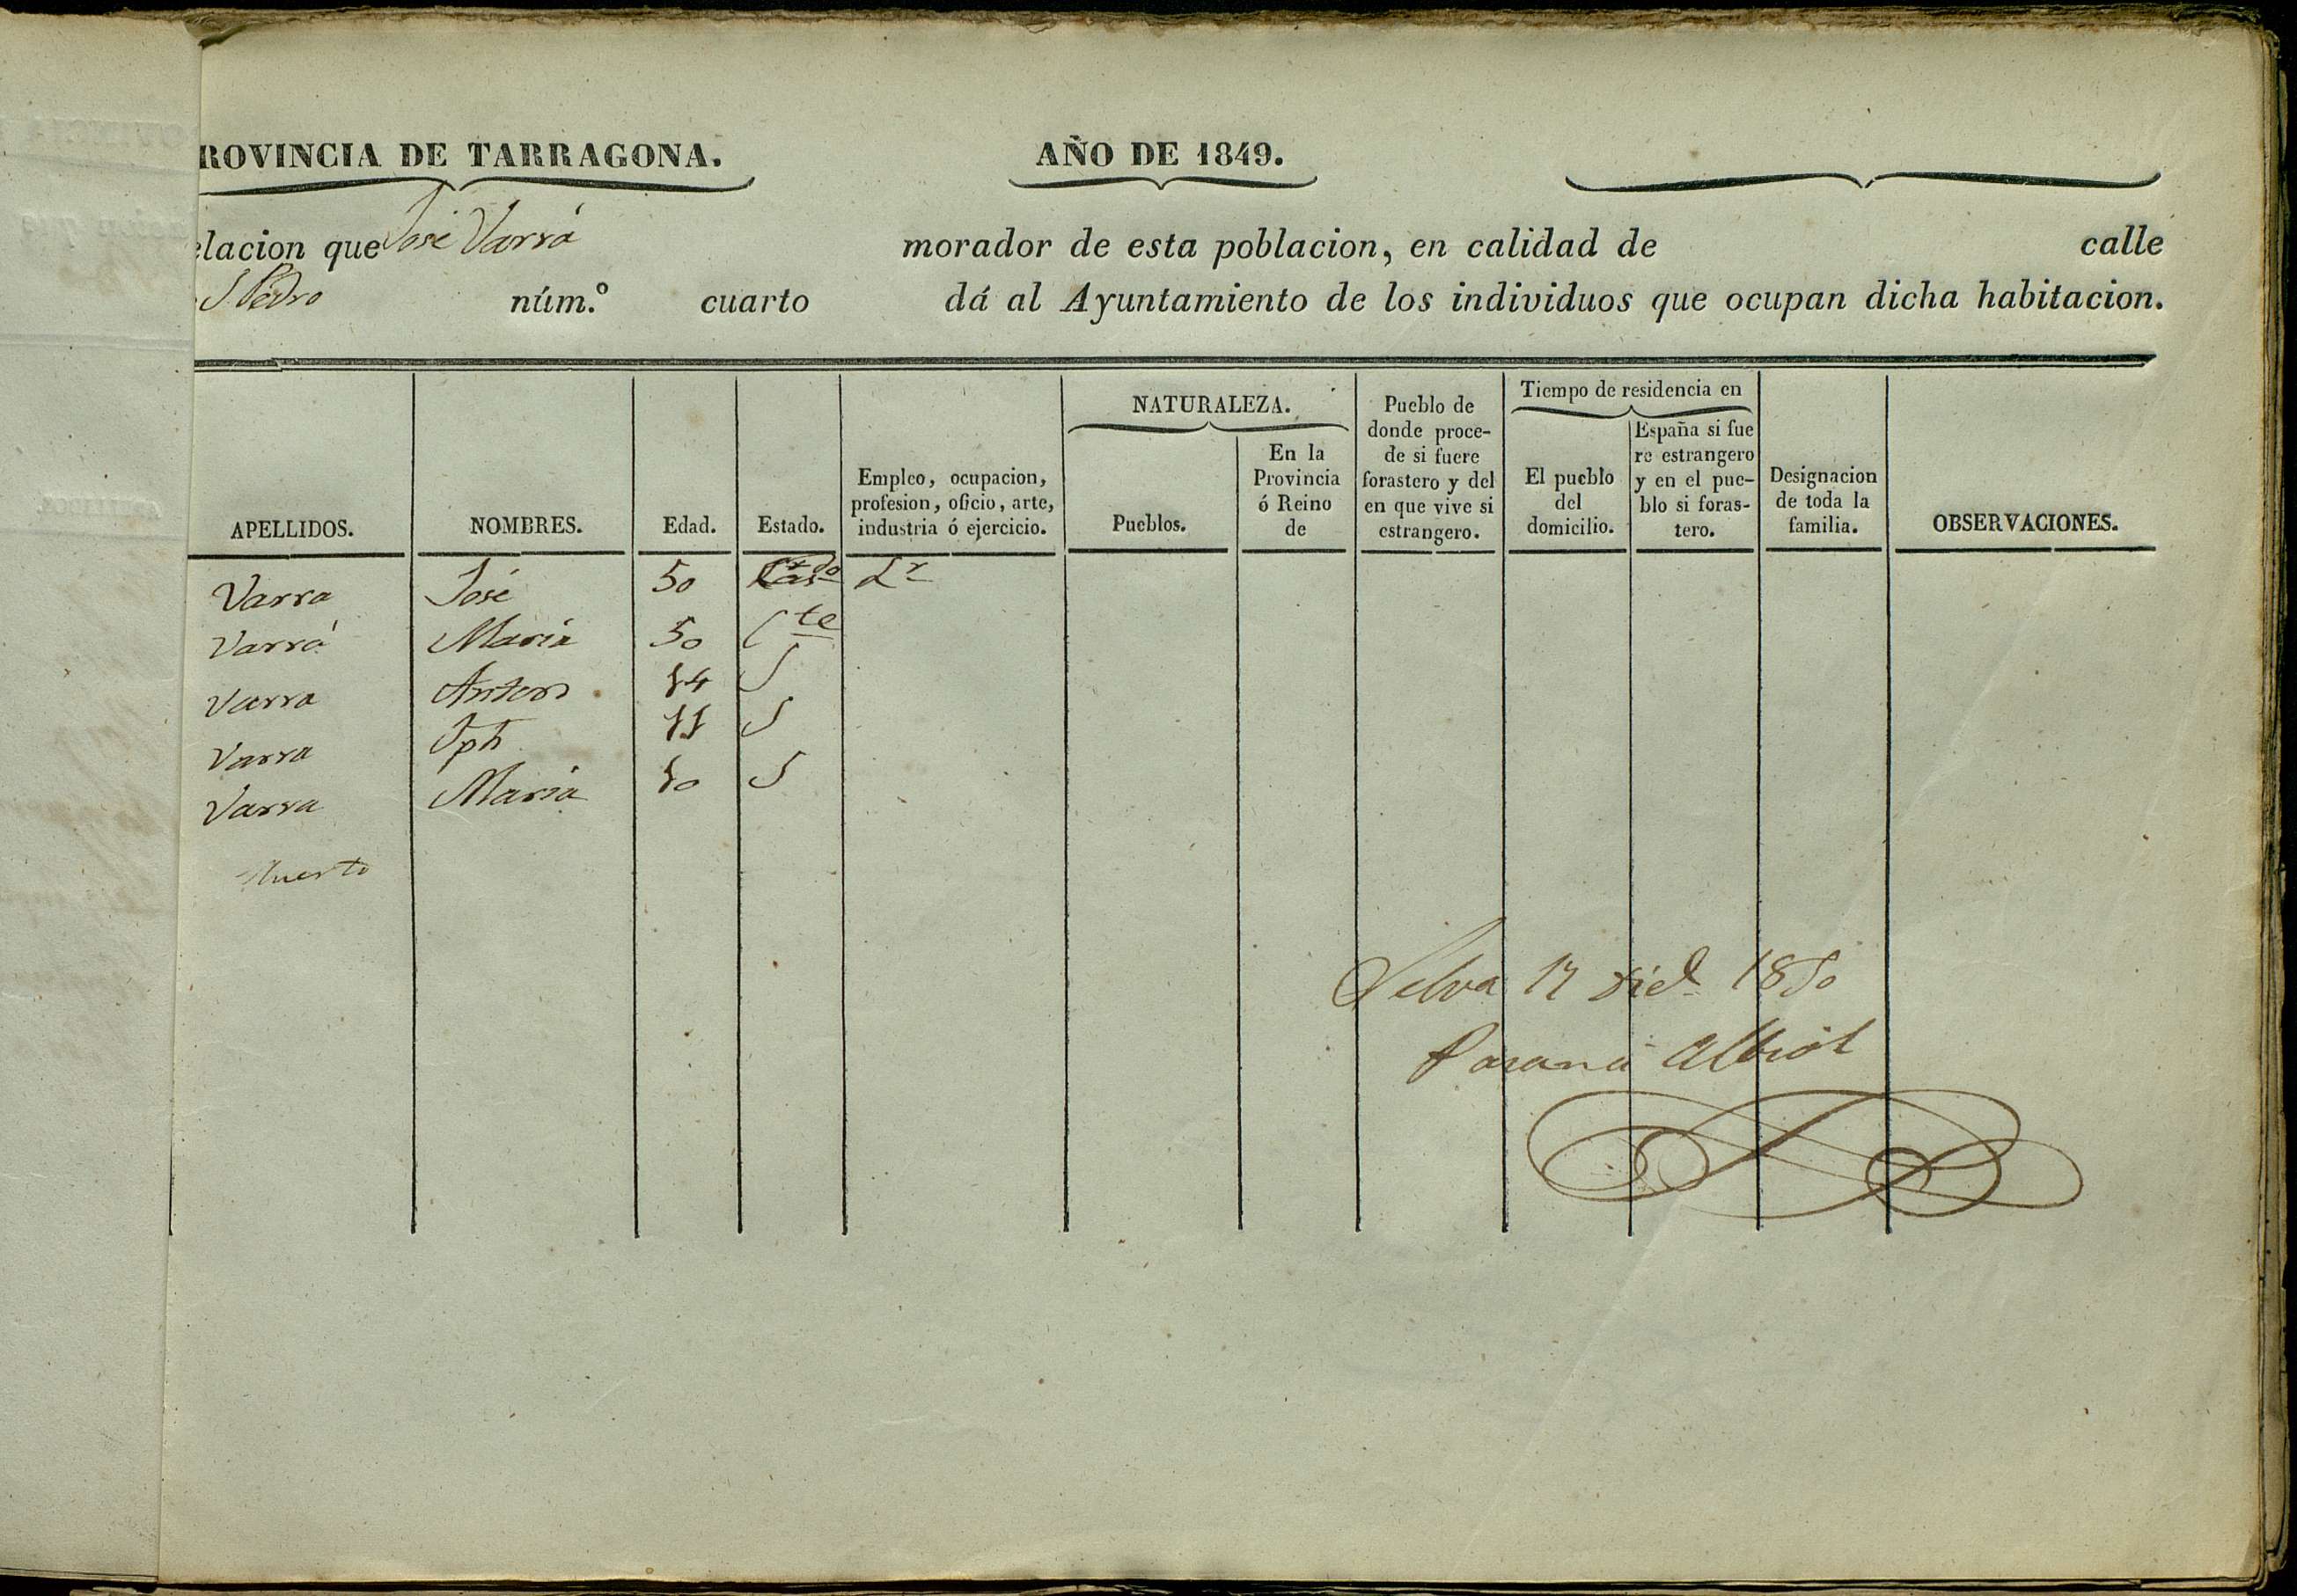 ROVINCIA DE TARRAGONA. AÑO DE 1849.
elacion que José Varrá morador de esta poblacion, en calidad de calle
S. Pedro núm.º cuarto dá al Ayuntamiento de los individuos que ocupan dicha habitacion.
APELLIDOS.
NOMBRES.
Edad.
Estado.
Empleo, ocupacion,
profesion, oficio, arte,
industria ó ejercicio.
NATURALEZA.
Pueblos.
En la
Provincia
ó Reino
de
Pueblo de
donde proce-
de si fuere
forastero y del
en que vive si
estrangero.
Tiempo de residencia en
El pueblo
del
domicilio.
España si fue
re estrangero
y en el pue-
blo si foras-
tero.
Designacion
de toda la
familia.
OBSERVACIONES.
Varra José 50 Lr
Varrá María 50 Cte
Varra Anton 14 S
Varra Jph 11 S
Varra María 10 S
Muerto
Selva 17 1850
Albiol